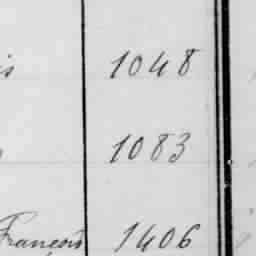 is 1048
1083
François 1406